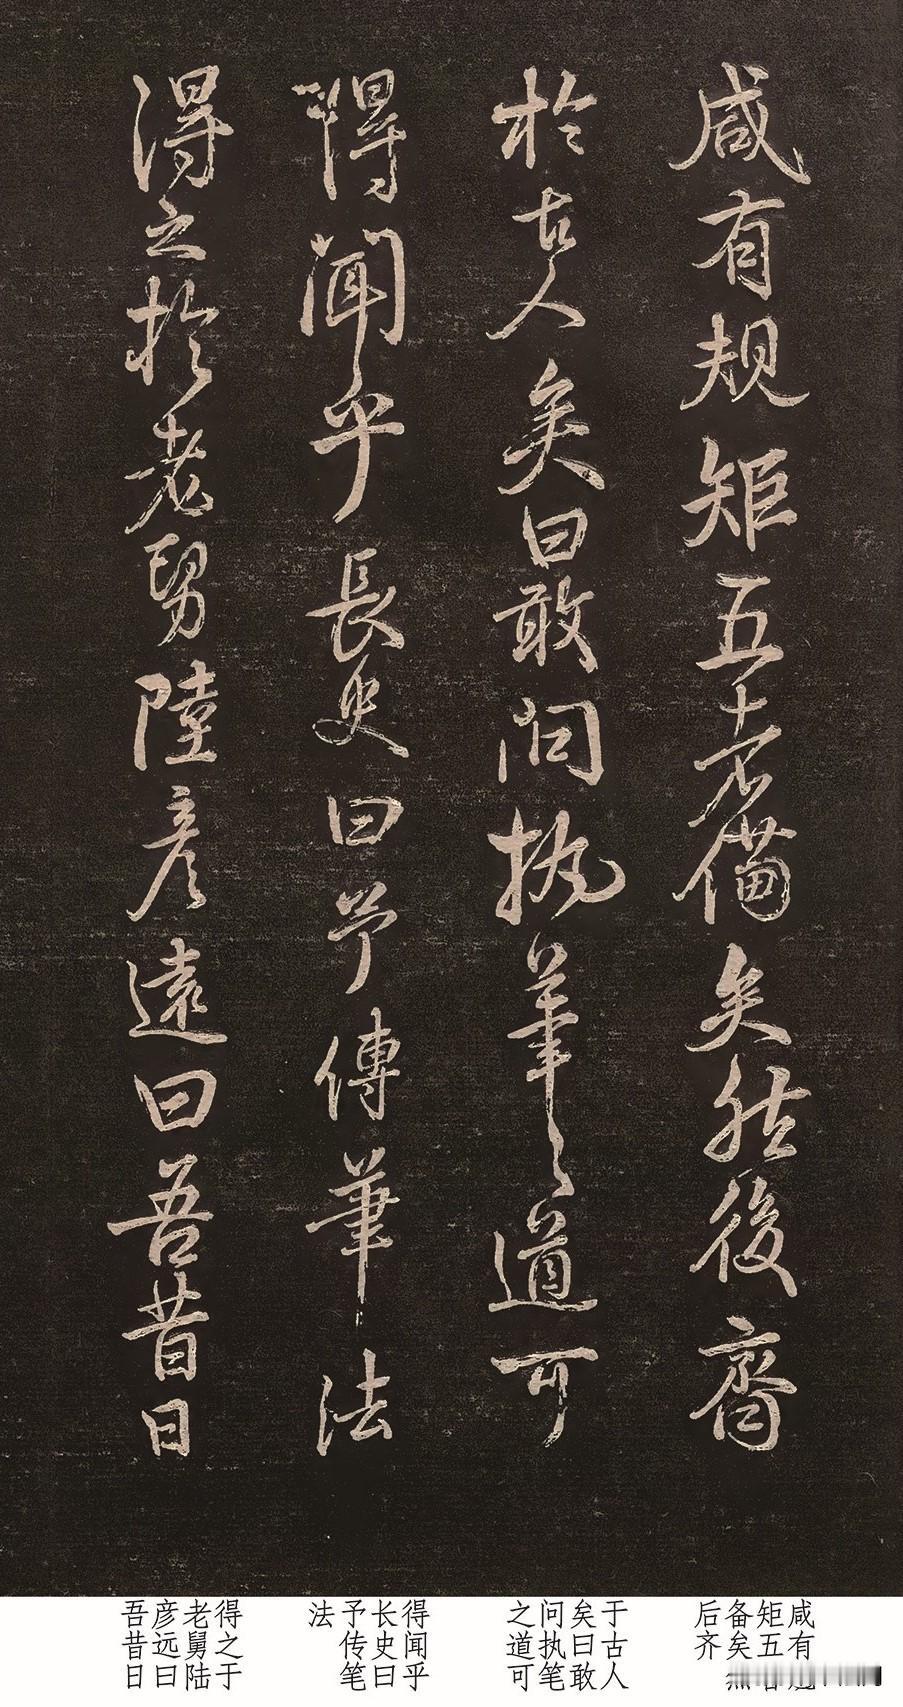 咸有規矩五者備矣然後齊
於古人矣曰敢問執筆之道可
得聞乎長史曰予傳筆法
得之於老舅陸彥遠曰吾昔日
咸有规
矩五者
备矣然
后齐
于古人
矣曰敢
问执笔
之道可
得闻乎
长史曰
予传笔
法
得之于
老舅陆
彦远曰
吾昔日